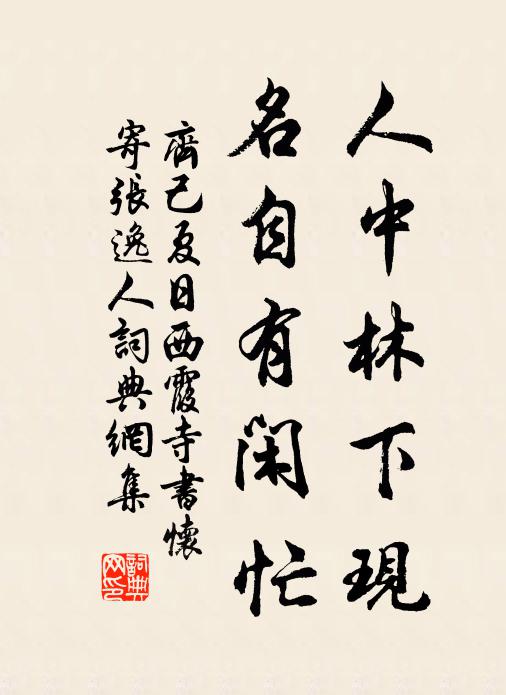 人中林下現
名自有閑忙
齊己夏日西霞寺書懷
寄張逸人詞典網集
詞典網印